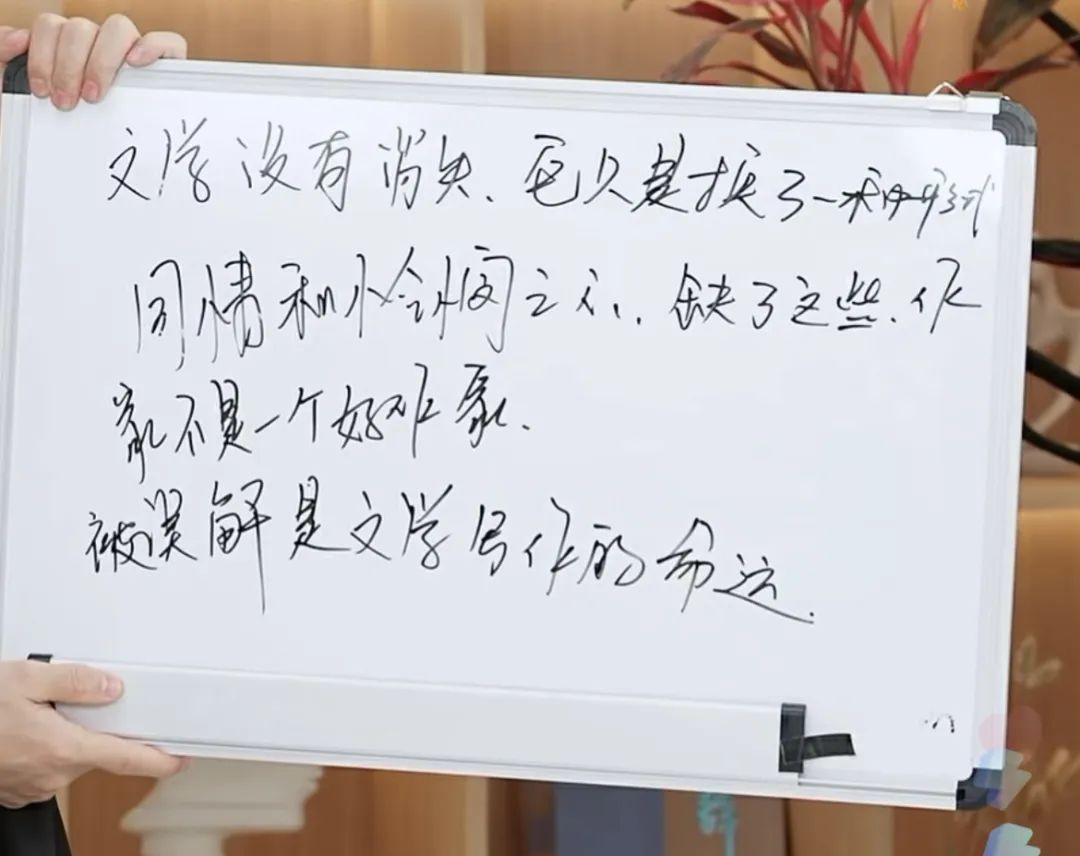 文学没有消失、它只是换了一种形式
同情和怜悯之心、缺了这些、作
家不是一个好作家.
被误解是文学写作的命运.